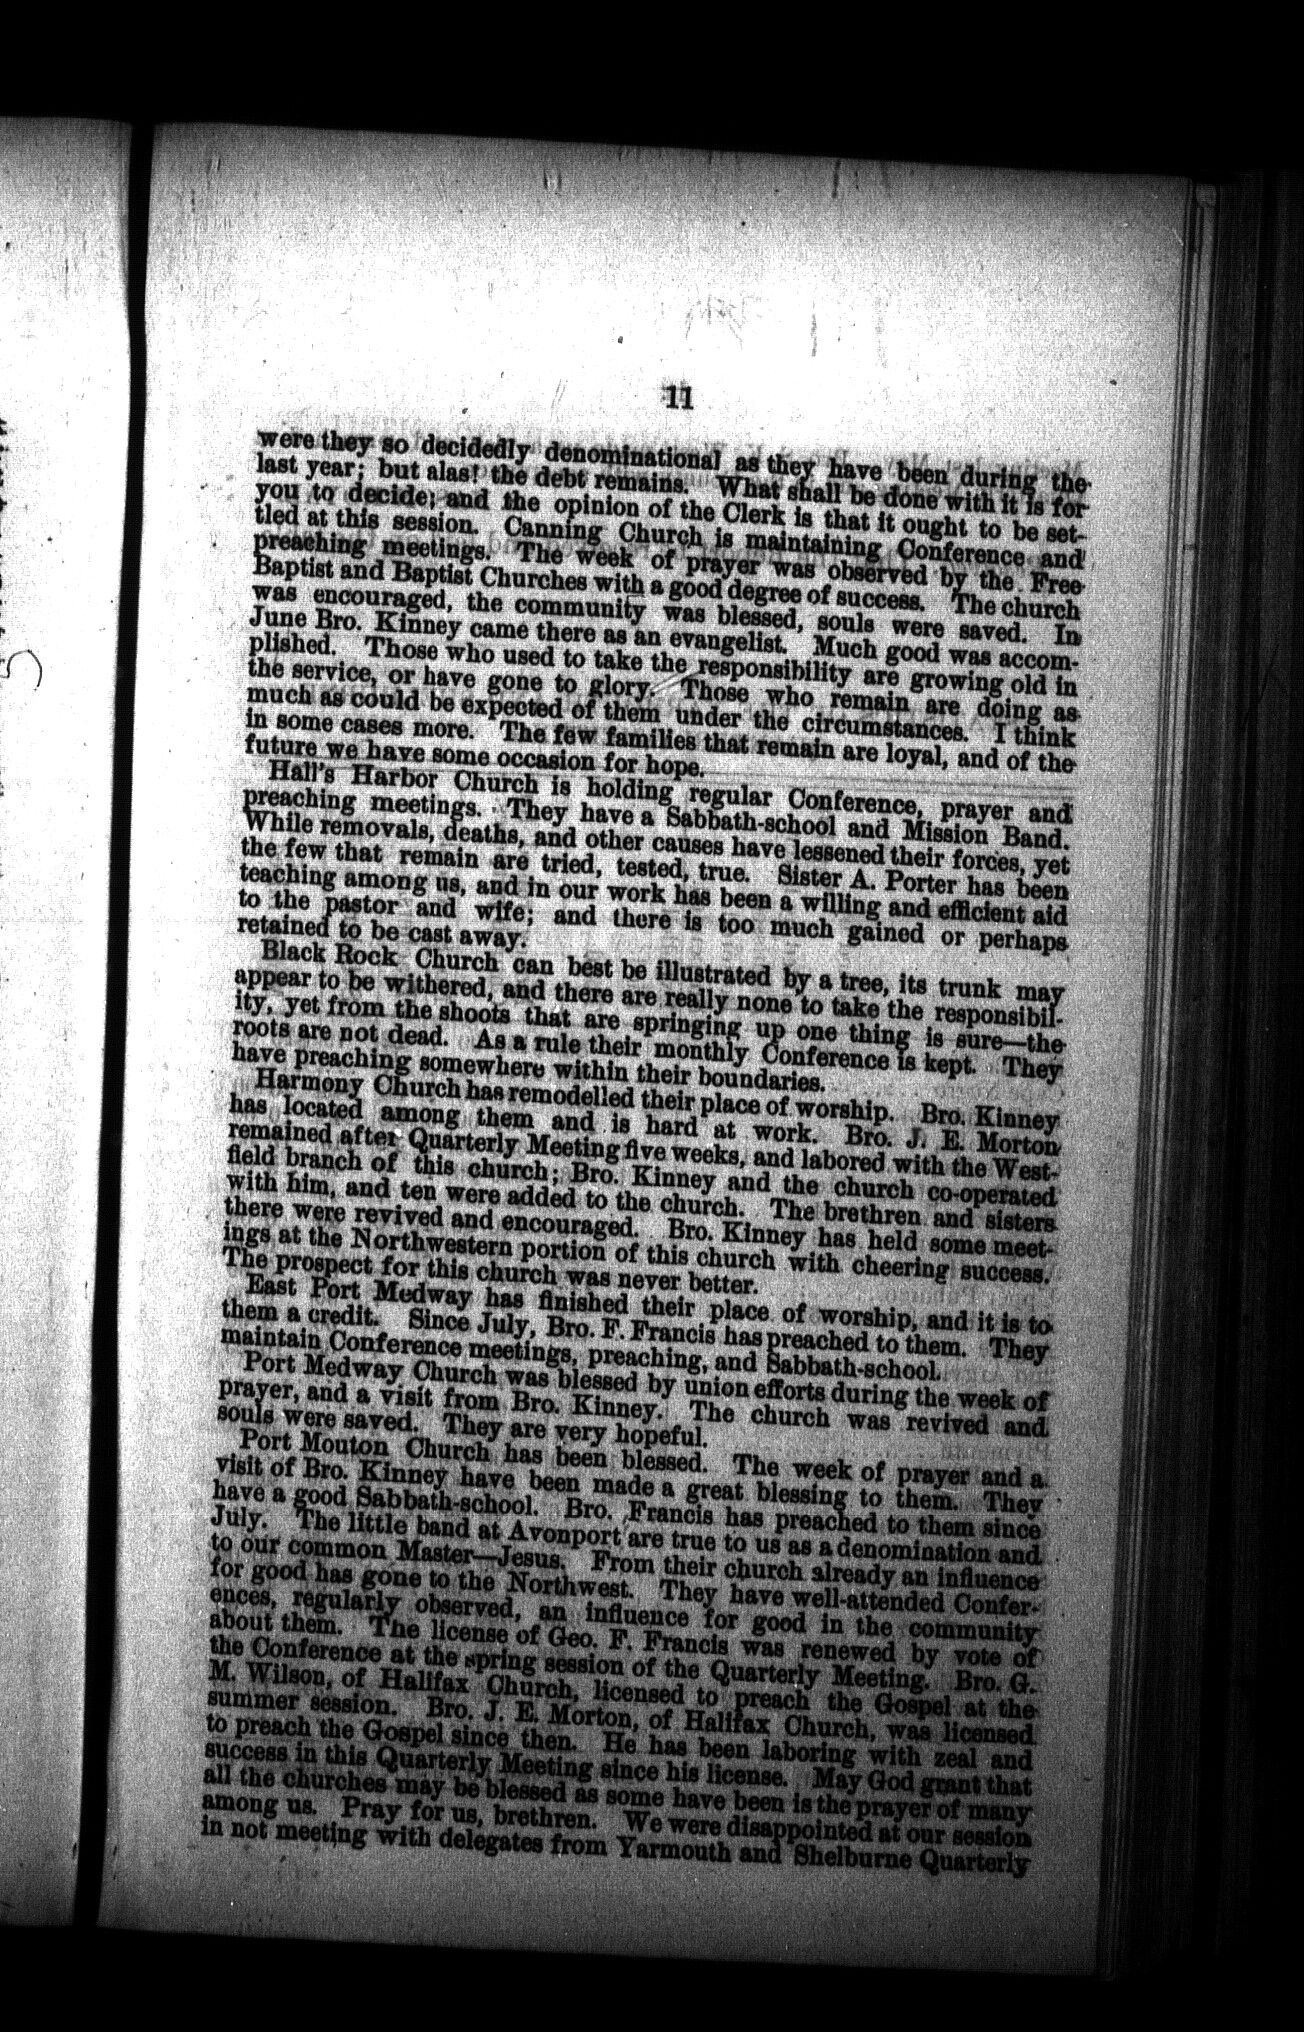 11
were they so decidedly denominational as they have been during the
last year; but alas! the debt remains. What shall be done with it is for
you to decide; and the opinion of the Clerk is that it ought to be set-
tled at this session. Canning Church is maintaining Conference and
preaching meetings. The week of prayer was observed by the Free
Baptist and Baptist Churches with a good degree of success. The church
was encouraged, the community was blessed, souls were saved. In
June Bro. Kinney came there as an evangelist. Much good was accom-
plished. Those who used to take the responsibility are growing old in
the service, or have gone to glory. Those who remain are doing as
much as could be expected of them under the circumstances. I think
in some cases more. The few families that remain are loyal, and of the
future we have some occasion for hope.
Hall's Harbor Church is holding regular Conference, prayer and
preaching meetings. They have a Sabbath-school and Mission Band.
While removals, deaths, and other causes have lessened their forces, yet
the few that remain are tried, tested, true. Sister A. Porter has been
teaching among us, and in our work has been a willing and efficient aid
to the pastor and wife; and there is too much gained or perhaps
retained to be cast away.
Black Rock Church can best be illustrated by a tree, its trunk may
appear to be withered, and there are really none to take the responsibil-
ity, yet from the shoots that are springing up one thing is sure—the
roots are not dead. As a rule their monthly Conference is kept. They
have preaching somewhere within their boundaries.
Harmony Church has remodelled their place of worship. Bro. Kinney
has located among them and is hard at work. Bro. J. E. Morton
remained after Quarterly Meeting five weeks, and labored with the West-
field branch of this church; Bro. Kinney and the church co-operated
with him, and ten were added to the church. The brethren and sisters
there were revived and encouraged. Bro. Kinney has held some meet-
ings at the Northwestern portion of this church with cheering success.
The prospect for this church was never better.
East Port Medway has finished their place of worship, and it is to
them a credit. Since July, Bro. F. Francis has preached to them. They
maintain Conference meetings, preaching, and Sabbath-school.
Port Medway Church was blessed by union efforts during the week of
prayer, and a visit from Bro. Kinney. The church was revived and
souls were saved. They are very hopeful.
Port Mouton Church has been blessed. The week of prayer and a
visit of Bro. Kinney have been made a great blessing to them. They
have a good Sabbath-school. Bro. Francis has preached to them since
July. The little band at Avonport are true to us as a denomination and
to our common Master—Jesus. From their church already an influence
for good has gone to the Northwest. They have well-attended Confer-
ences, regularly observed, an influence for good in the community
about them. The license of Geo. F. Francis was renewed by vote of
the Conference at the spring session of the Quarterly Meeting. Bro. G.
M. Wilson, of Halifax Church, licensed to preach the Gospel at the
summer session. Bro. J. E. Morton, of Halifax Church, was licensed
to preach the Gospel since then. He has been laboring with zeal and
success in this Quarterly Meeting since his license. May God grant that
all the churches may be blessed as some have been is the prayer of many
among us. Pray for us, brethren. We were disappointed at our session
in not meeting with delegates from Yarmouth and Shelburne Quarterly